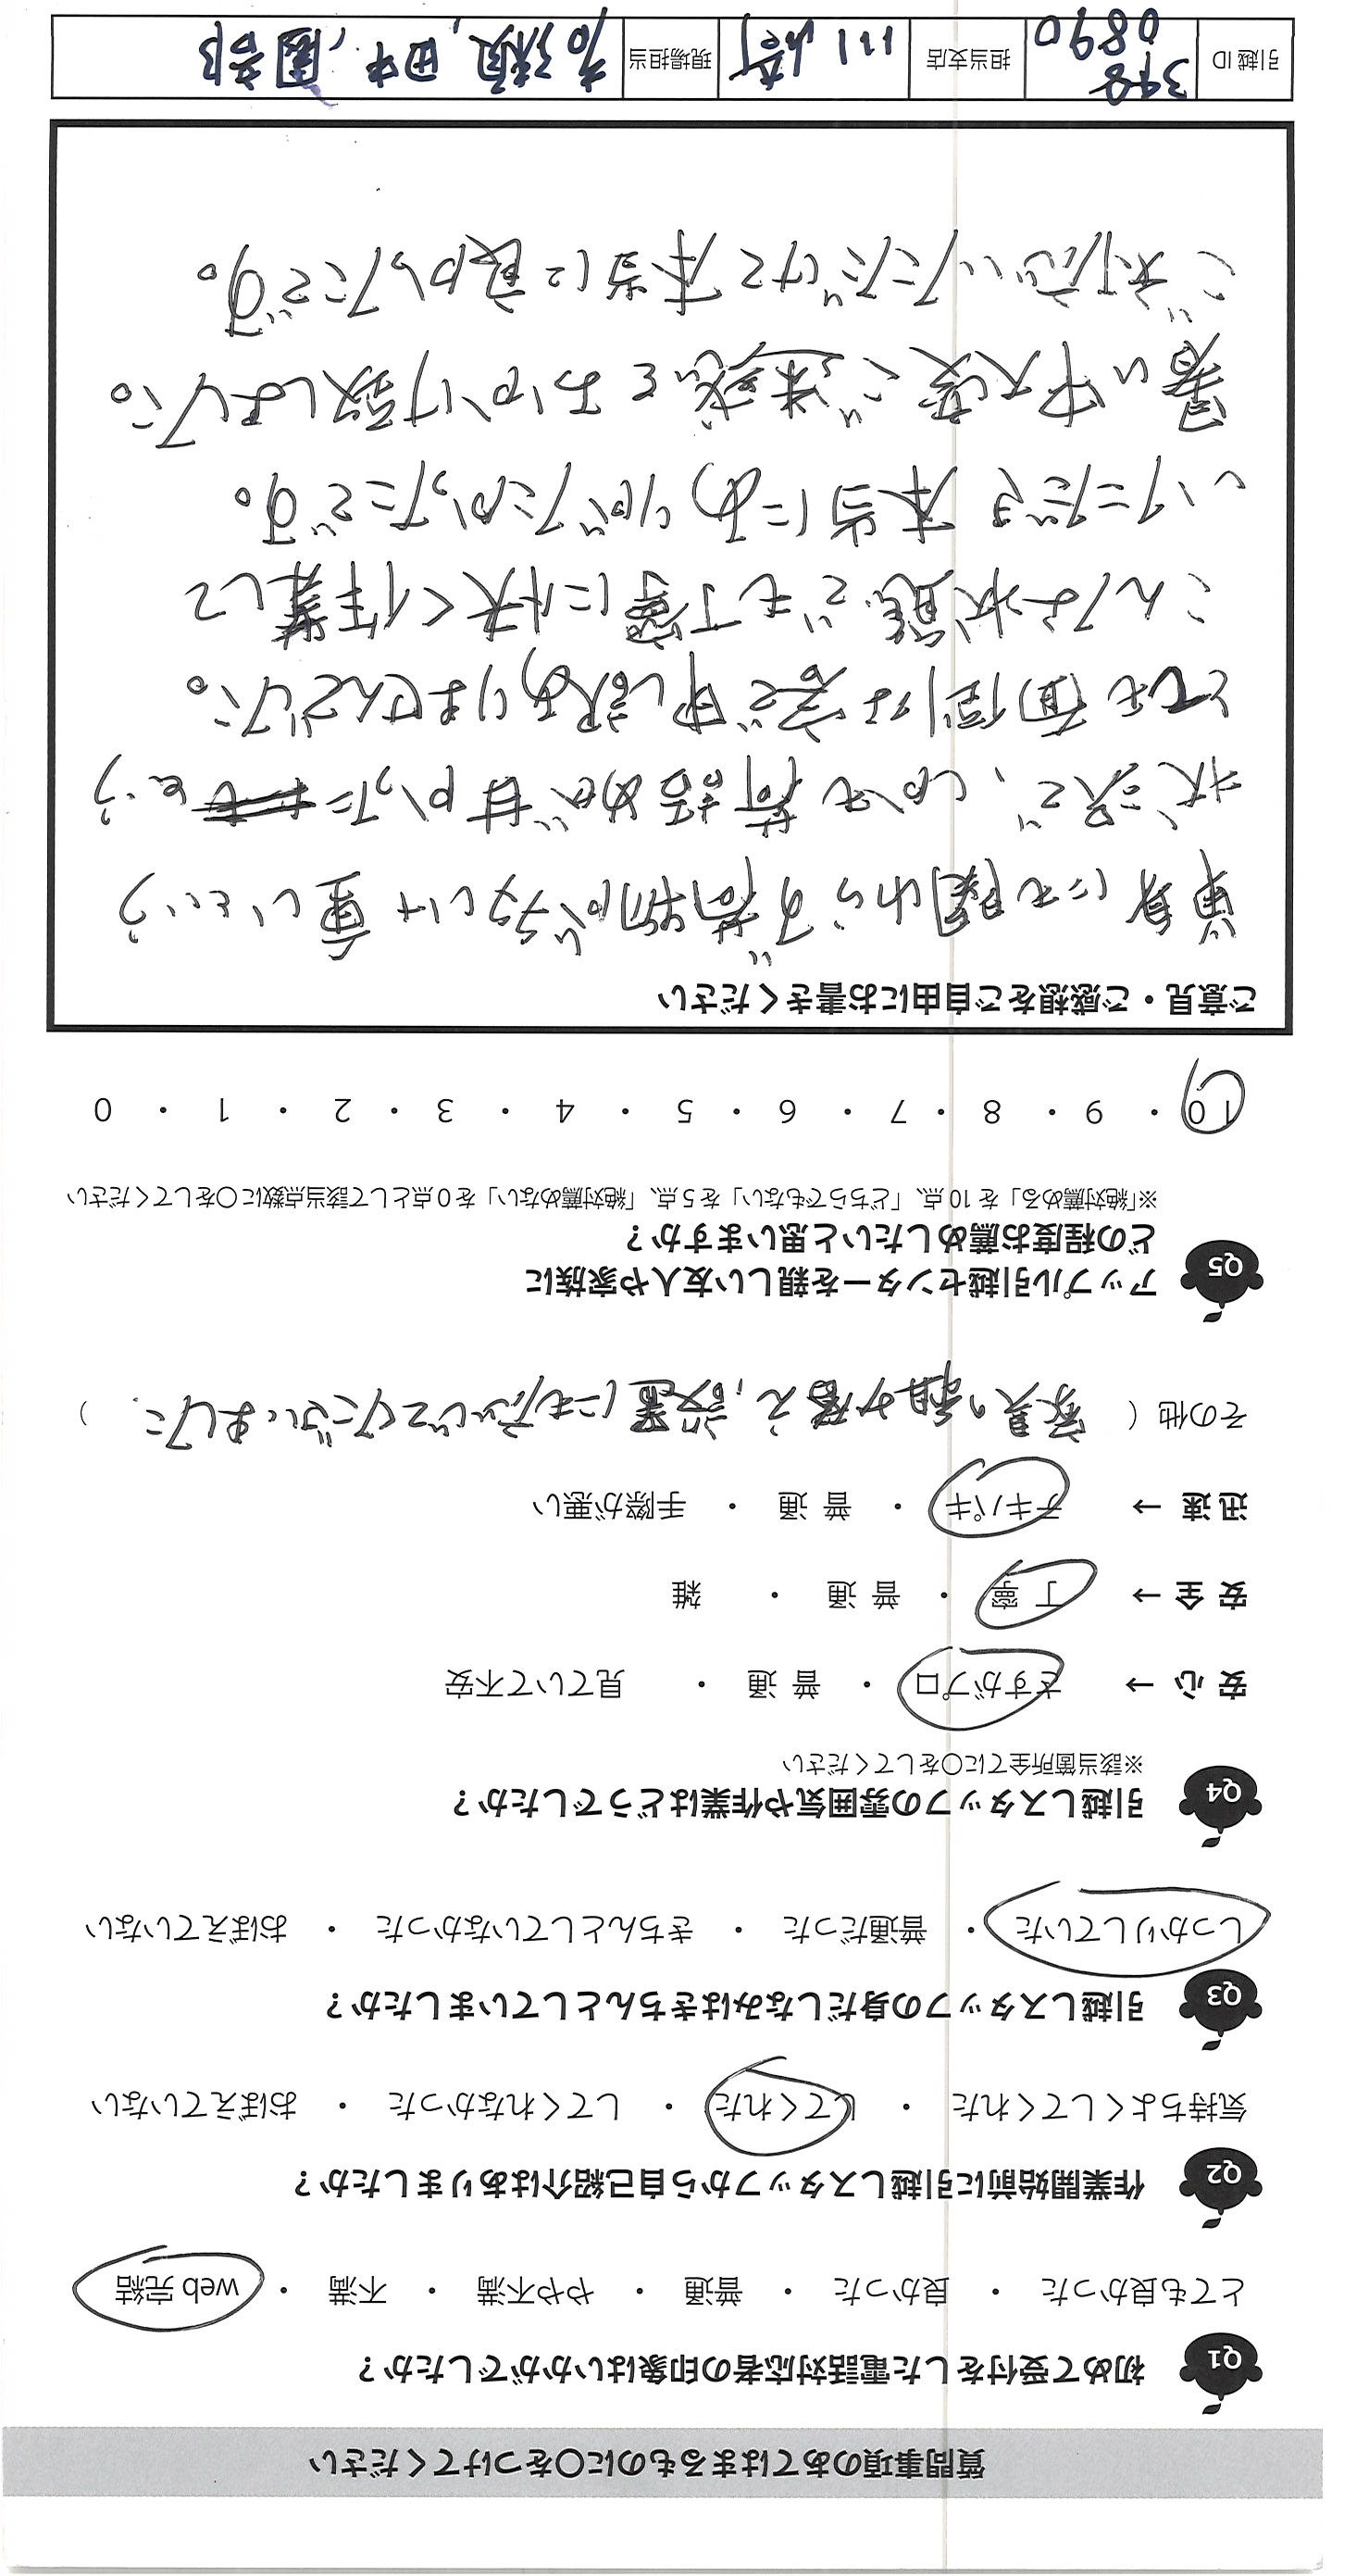 質問事項のあてはまるものに〇をつけてください
Q1 初めて受付をした電話対応者の印象はいかがでしたか？
とても良かった ・ 良かった ・ 普通 ・ やや不満 ・ 不満 ・ web 完結
Q2 作業開始前に引越しスタッフから自己紹介はありましたか？
気持ちよくしてくれた ・ してくれた ・ してくれなかった ・ おぼえていない
Q3 引越しスタッフの身だしなみはきちんとしていましたか？
しっかりしていた ・ 普通だった ・ きちんとしていなかった ・ おぼえていない
Q4 引越しスタッフの雰囲気や作業はどうでしたか？
※該当箇所全てに〇をしてください
安 心 → さすがプロ ・ 普 通 ・ 見ていて不安
安 全 → 丁 寧 ・ 普 通 ・ 雑
迅 速 → テキパキ ・ 普 通 ・ 手際が悪い
その他（ 家具の組み替え、設置にも応じてくださいました. ）
Q5 アップル引越センターを親しい友人や家族に
どの程度お薦めしたいと思いますか？
※「絶対薦める」を 10 点、「どちらでもない」を 5 点、「絶対薦めない」を 0 点として該当点数に〇をしてください
10 ・ 9 ・ 8 ・ 7 ・ 6 ・ 5 ・ 4 ・ 3 ・ 2 ・ 1 ・ 0
ご意見・ご感想をご自由にお書きください
単身にも関わらず荷物が多い＋重いという
状況で、しかも荷詰めが甘かったという
とても面倒な客で申し訳ありませんでした。
こんな状態でも丁寧に快く作業して
いただき本当にありがたかったです。
暑い中大変ご迷惑をおかけ致しました。
ご対応いただけて本当に良かったです。
引越 ID 398 0890 担当支店 川崎 現場担当 田中、園部